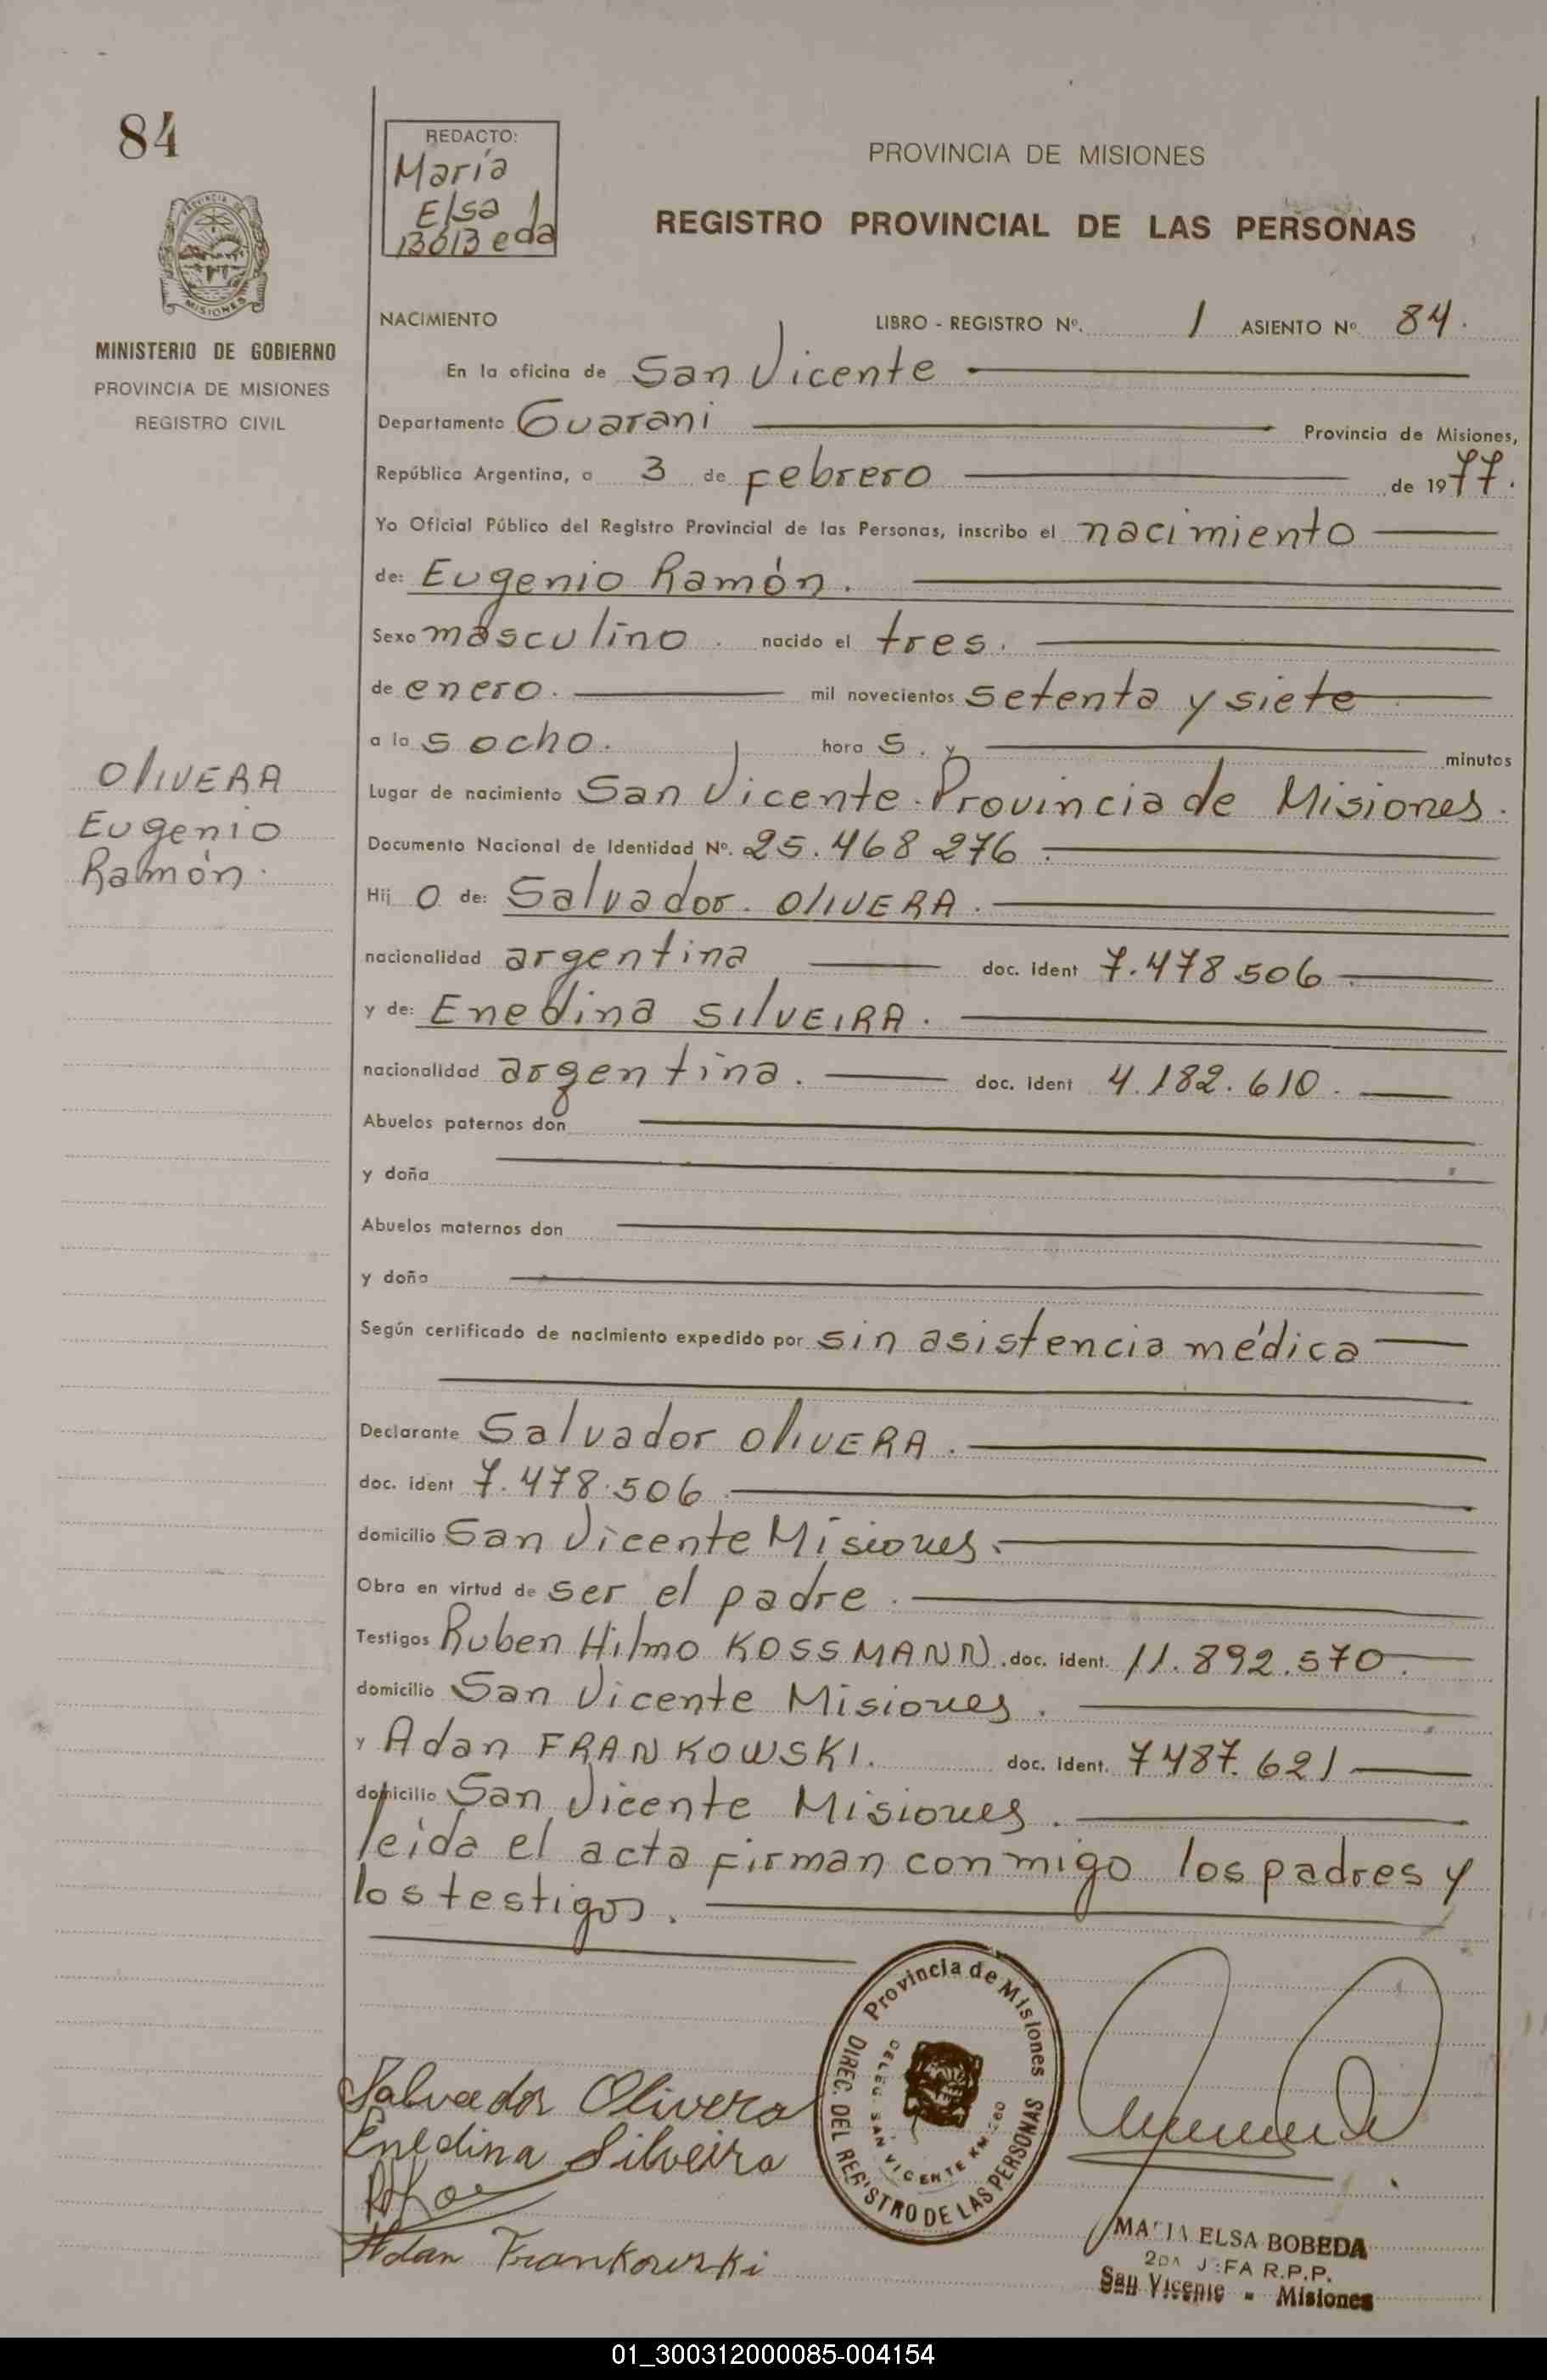 84
REDACTO:
María
Elsa
Bobeda
PROVINCIA DE MISIONES
REGISTRO PROVINCIAL DE LAS PERSONAS
PROVINCIA DE
MISIONES
MINISTERIO DE GOBIERNO
PROVINCIA DE MISIONES
REGISTRO CIVIL
NACIMIENTO LIBRO - REGISTRO Nº. 1 ASIENTO Nº 84.
En la oficina de San Vicente
Departamento Guarani Provincia de Misiones,
República Argentina, a 3 de Febrero de 1977.
Yo Oficial Público del Registro Provincial de las Personas, inscribo el nacimiento
de: Eugenio Ramón.
Sexo masculino. nacido el tres.
de enero. mil novecientos setenta y siete
a las ocho. horas. y minutos
OLIVERA
Eugenio
Ramón.
Lugar de nacimiento San Vicente. Provincia de Misiones.
Documento Nacional de Identidad Nº. 25.468 276.
Hijo de: Salvador. OLIVERA.
nacionalidad argentina doc. ident 7.478 506.
y de: Enedina SILVEIRA.
nacionalidad argentina. doc. ident 4.182.610.
Abuelos paternos don
y doña
Abuelos maternos don
y doña
Según certificado de nacimiento expedido por sin asistencia médica
Declarante Salvador OLIVERA.
doc. ident 7.478.506
domicilio San Vicente Misiones.
Obra en virtud de ser el padre.
Testigos Ruben Hilmo KOSSMANN. doc. ident. 11.892.570.
domicilio San Vicente Misiones.
y Adan FRANKOWSKI. doc. ident. 7487.621
domicilio San Vicente Misiones.
leida el acta firman conmigo los padres y
los testigos.
Provincia de Misiones
DIREC. DEL REGISTRO DE LAS PERSONAS
DELEG. SAN VICENTE KM. 280
Salvador Olivera
Enedina Silveira
Adan Frankowski
MARIA ELSA BOBEDA
2DA JEFA R.P.P.
San Vicente - Misiones
01_300312000085-004154